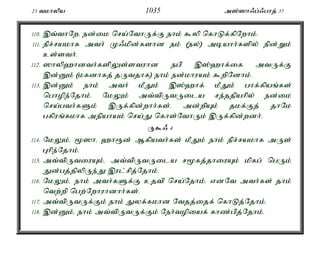 23 வமாலிய 1035 அஸ்ஸாஃப்ஃபாத் 37
110. இவ்வாறே, நன்மை செய்வோருக்கு நாம் கூலி கொடுக்கிறோம்.
111. நிச்சயமாக அவர் முஃமின்களான நம் (நல்) அடியார்களில் நின்றும் உள்ளவர்.
112. ஸாலிஹானவர்களிலுள்ளவரான நபி இஸ்ஹாக்கை அவருக்கு
இன்னும் (மகனாகத் தருவதாக) நாம் நன்மாராயம் கூறினோம்.
113. இன்னும் நாம் அவர் மீதும் இஸ்ஹாக் மீதும் பாக்கியங்கள்
பொழிந்தோம். மேலும் அவ்விருவருடைய சந்ததியரில் நன்மை
செய்பவர்களும் இருக்கின்றார்கள். அன்றியும் தமக்குத் தாமே
பகிரங்கமாக அநியாயம் செய்து கொள்வோரும் இருக்கின்றனர்.
ருகூஃ 4
114. மேலும், மூஸா, ஹாரூன் ஆகியவர்கள் மீதும் நாம் நிச்சயமாக அருள்
புரிந்தோம்.
115. அவ்விருவரையும், அவ்விருவருடைய சமூகத்தாரையும் மிகப் பெரும்
துன்பத்திலிருந்து இரட்சித்தோம்.
116. மேலும், நாம் அவர்களுக்கு உதவி செய்தோம். எனவே அவர்கள் தாம்
வெற்றி பெற்றோரானார்கள்.
117. அவ்விருவருக்கும் நாம் துலக்கமான வேதத்தைக் கொடுத்தோம்.
118. இன்னும், நாம் அவ்விருவருக்கும் நேர்வழியைக் காண்பித்தோம்.